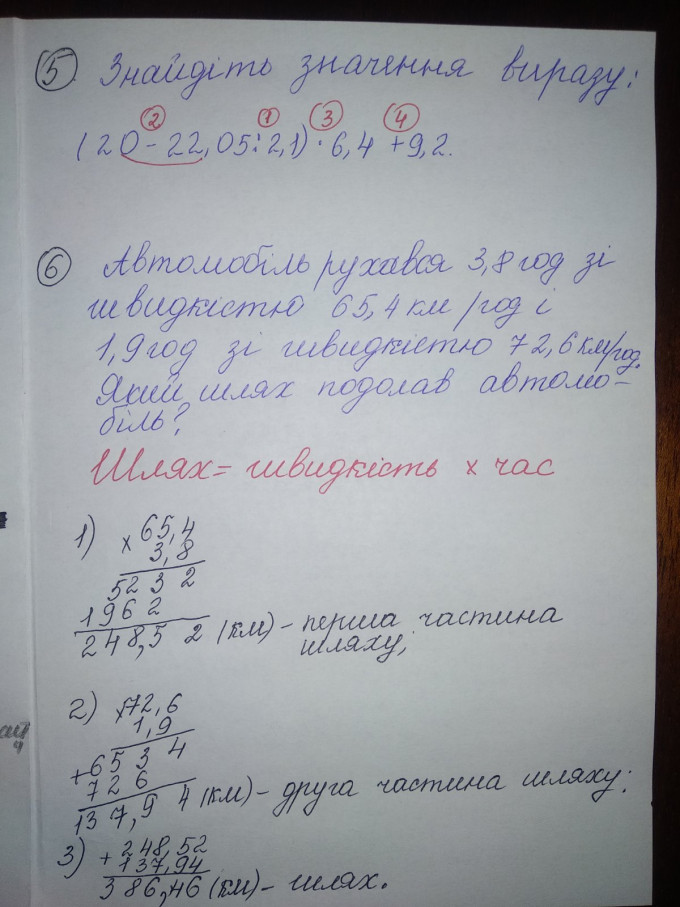 5 Знайдіть значення виразу:
2 1 3 4
(20 - 22,05 : 2,1) · 6,4 + 9,2.
6 Автомобіль рухався 3,8 год зі
швидкістю 65,4 км/год і
1,9 год зі швидкістю 72,6 км/год.
Який шлях подолав автомо-
біль?
Шлях = швидкість x час
1) x 65,4
3,8
5232
1962
248,52 (км) - перша частина
шляху;
2) x 72,6
1,9
+ 6534
726
137,94 (км) - друга частина шляху;
3) + 248,52
137,94
386,46 (км) - шлях.